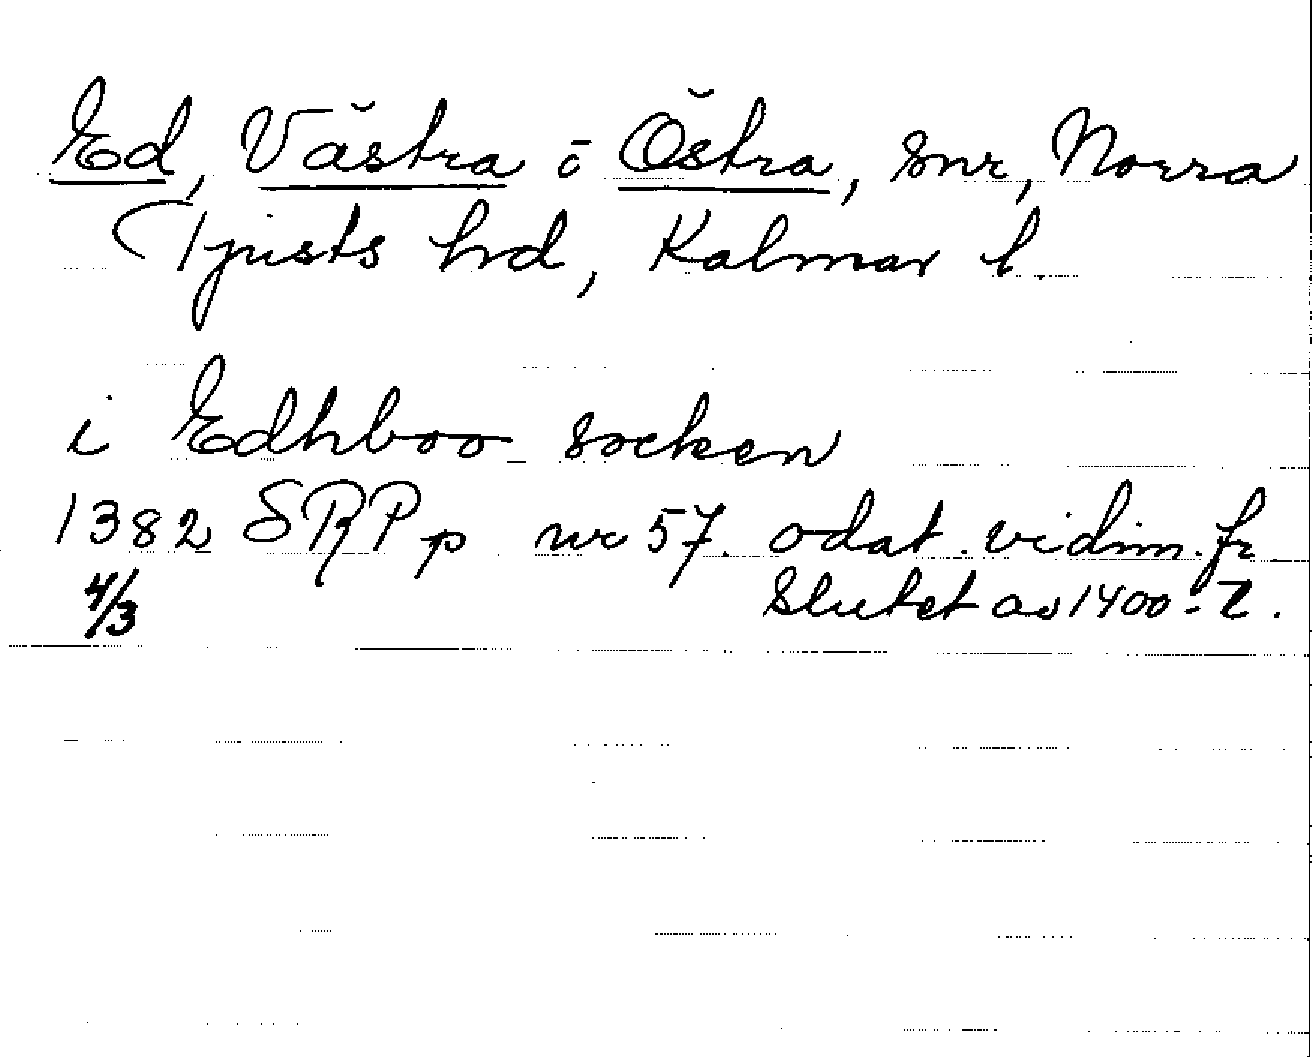 Ed, Västra o Östra, snr, Norra
Tjusts hrd, Kalmar l.
i Edhboo socken
1382 SRPp nr 57. odat. vidim. fr
4/3 Slutet av 1400-t.